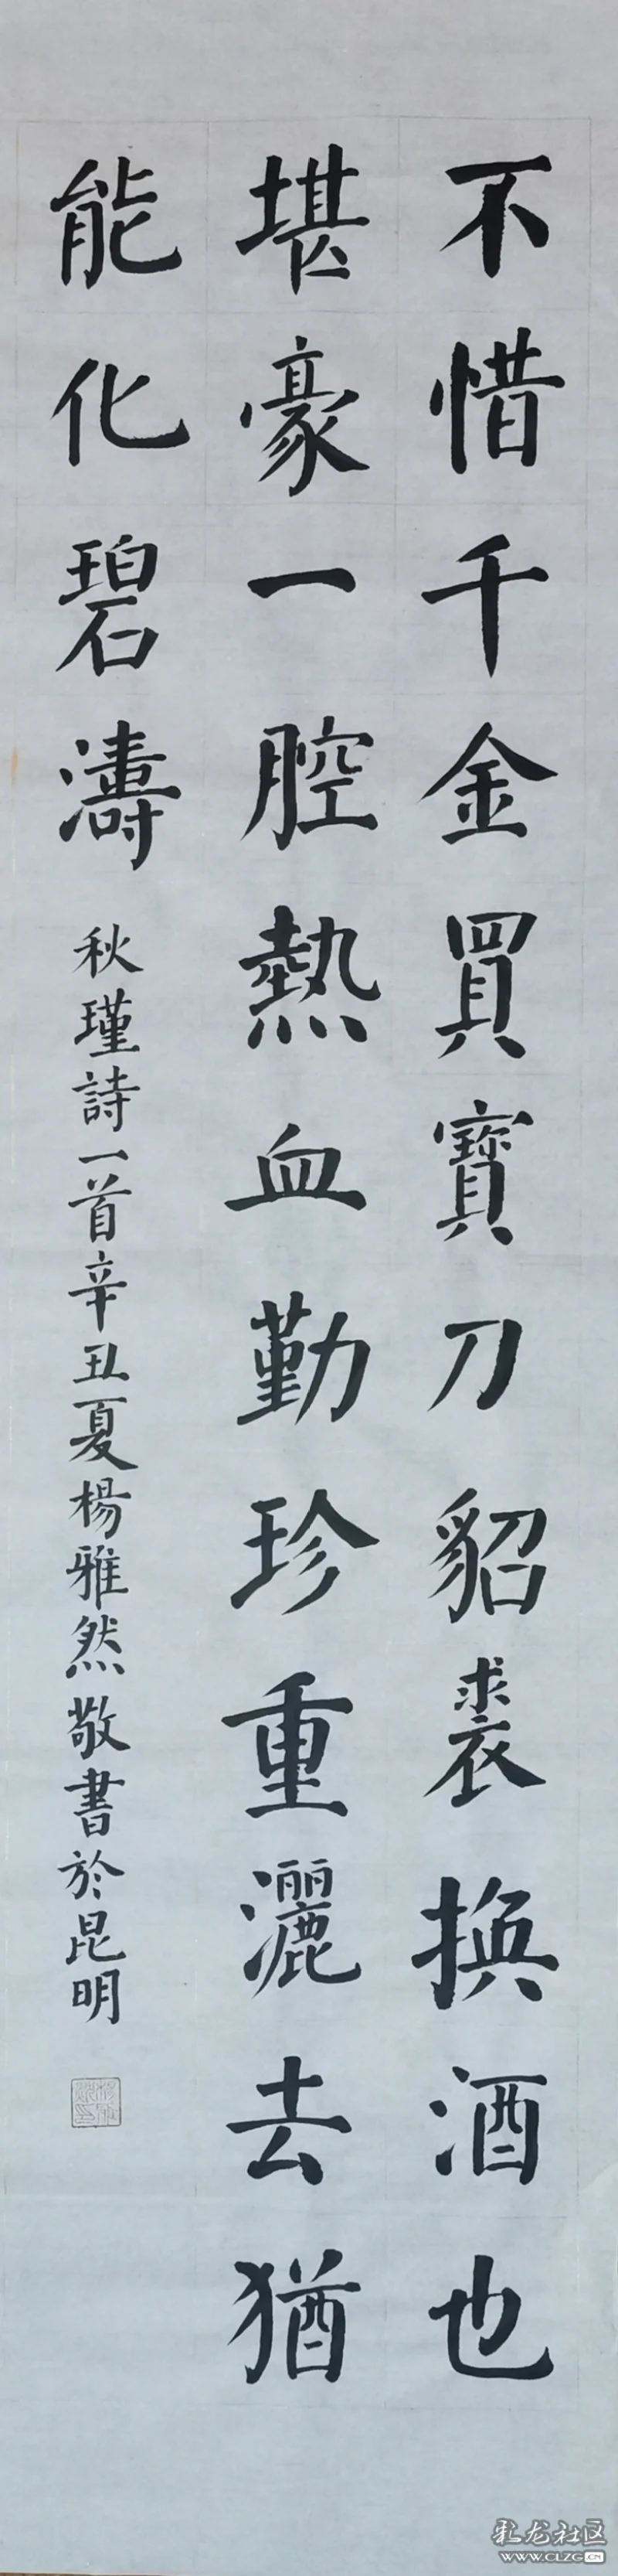 不惜千金買寶刀貂裘換酒也
堪豪一腔熱血勤珍重灑去猶
能化碧濤
秋瑾詩一首辛丑夏楊雅然敬書於昆明
彩龙社区
WWW.CLZG.CN